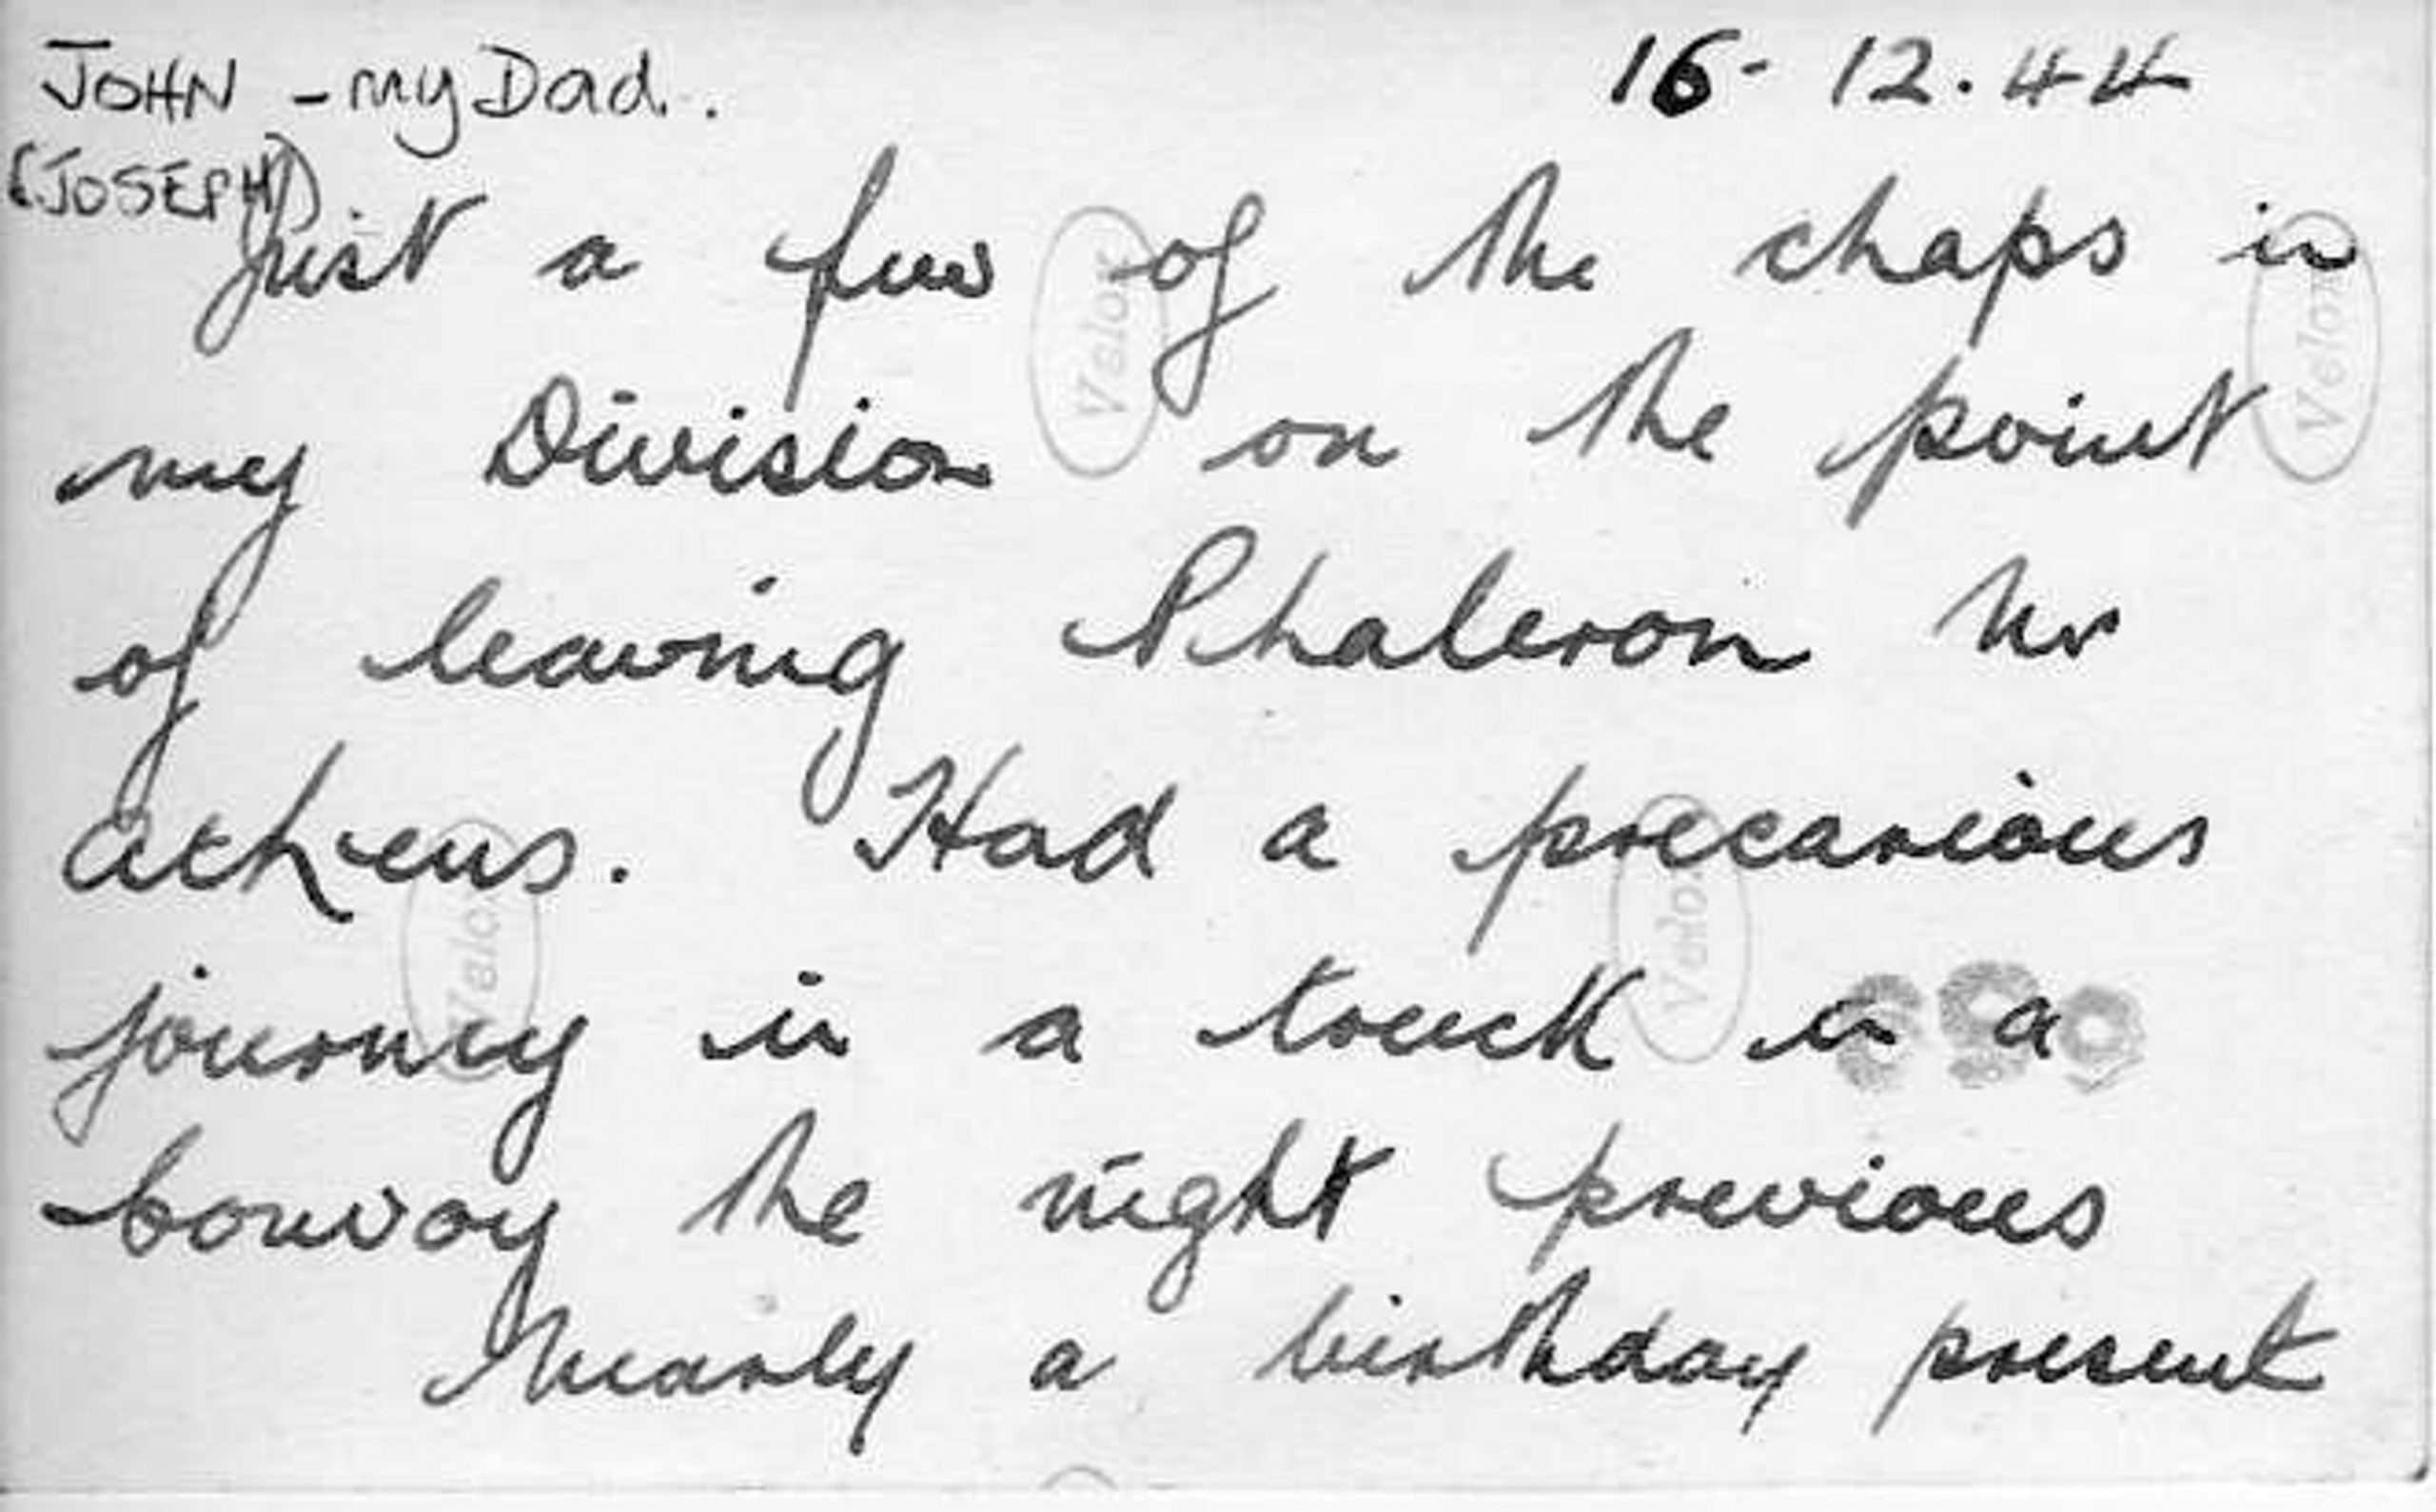 JOHN - my Dad.
16- 12.44
(JOSEPH)
Just a few of the chaps in
my Division on the point
of leaving Phaleron Nr
Athens. Had a precarious
journey in a truck in a
Convoy the night previous
Nearly a birthday present
Velox
Velox
Velox
Velox